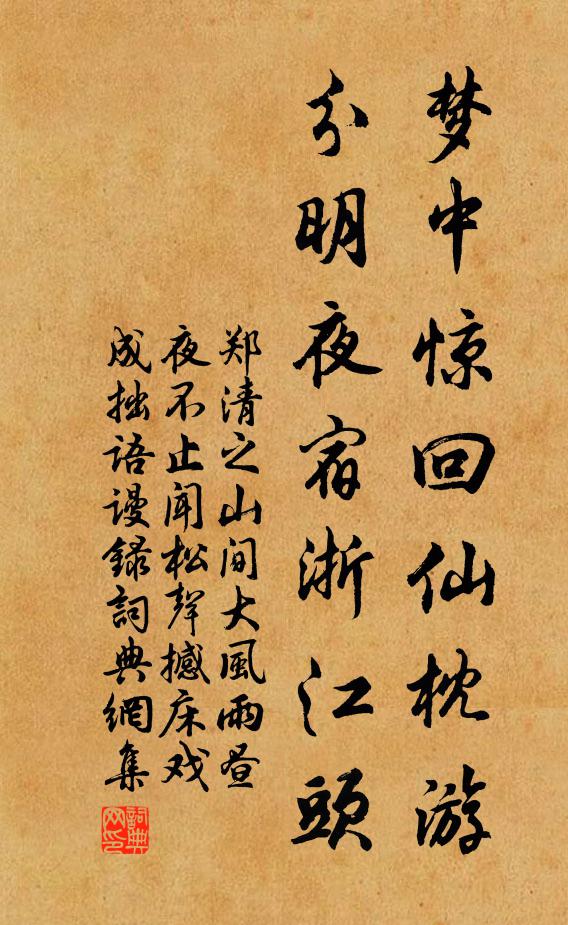 梦中惊回仙枕游
分明夜宿浙江頭
郑清之山间大風雨昼
夜不止闻松聲撼床戏
成拙语谩録詞典網集
詞典网印